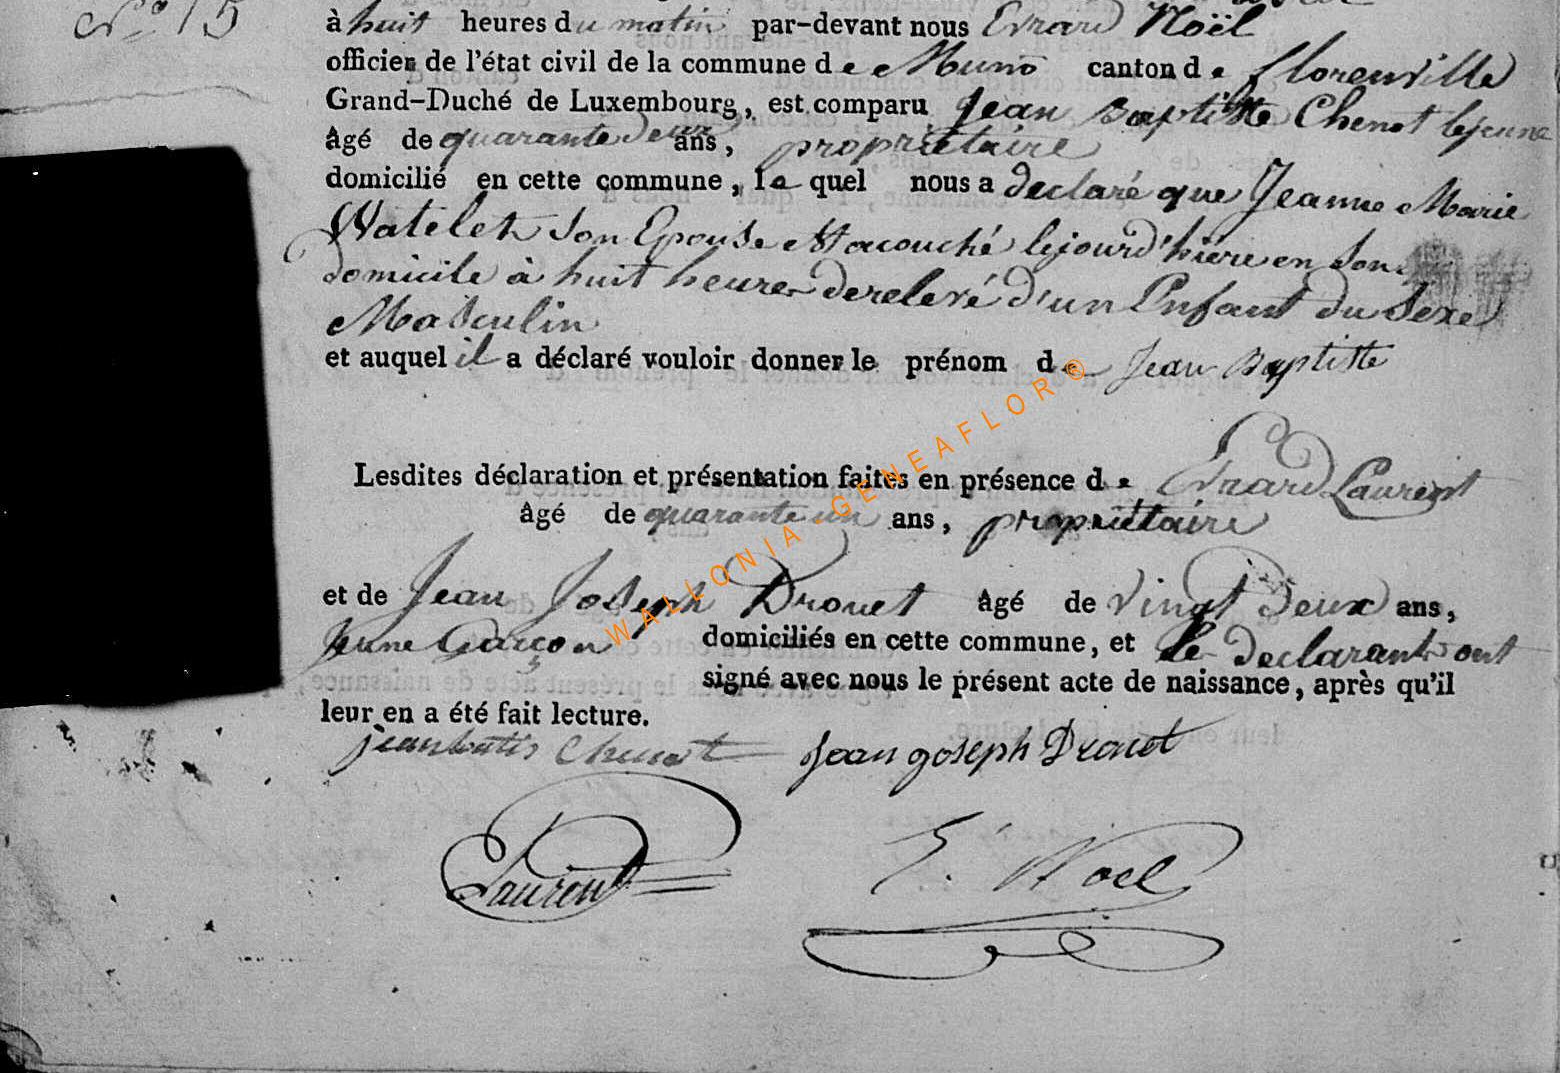 N.o 15
à huit heures du matin par-devant nous Evrard Noël
officier de l'état civil de la commune de Muno canton de florenville
Grand-Duché de Luxembourg, est comparu Jean Baptiste Chenot lejeune
âgé de quarante deux ans, propriétaire
domicilié en cette commune, le quel nous a declaré que Jeanne Marie
Watelet son Epouse est acouché lejourd'hiere en Son
domicile à huit heures derelevé d'un Enfant du Sexe
Masculin
et auquel il a déclaré vouloir donner le prénom de Jean Baptiste
Lesdites déclaration et présentation faites en présence de Evrard Laurent
âgé de quarante un ans, propriétaire
et de Jean Joseph Drouet âgé de vingt Deux ans,
Jeune Garçon domiciliés en cette commune, et le declarant ont
signé avec nous le présent acte de naissance, après qu'il
leur en a été fait lecture.
jeanbatis Chenot Jean joseph Drouet
Laurent E. Noel
WALLONIA - GENEAFLOR®